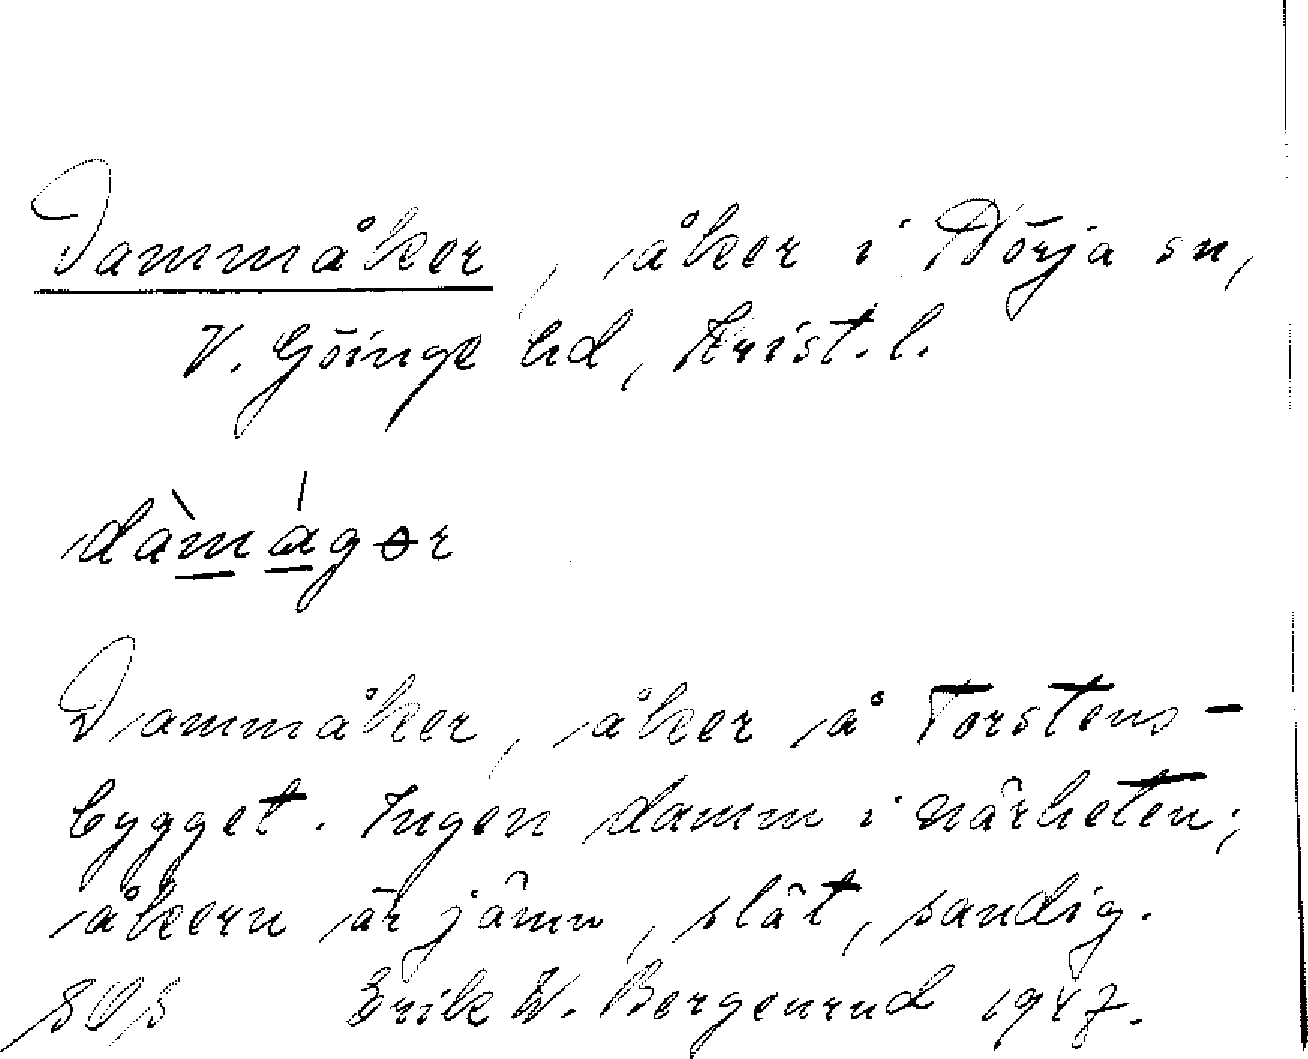 Dammåker, åker i Nörja sn,
V. Göinge hd, Krist. l.
dàmágər
Dammåker, åker å Torstens-
bygget. Ingen damm i närheten;
åkern är jämn, slät, sandig.
SOS Erik W. Bergenrud 1947.